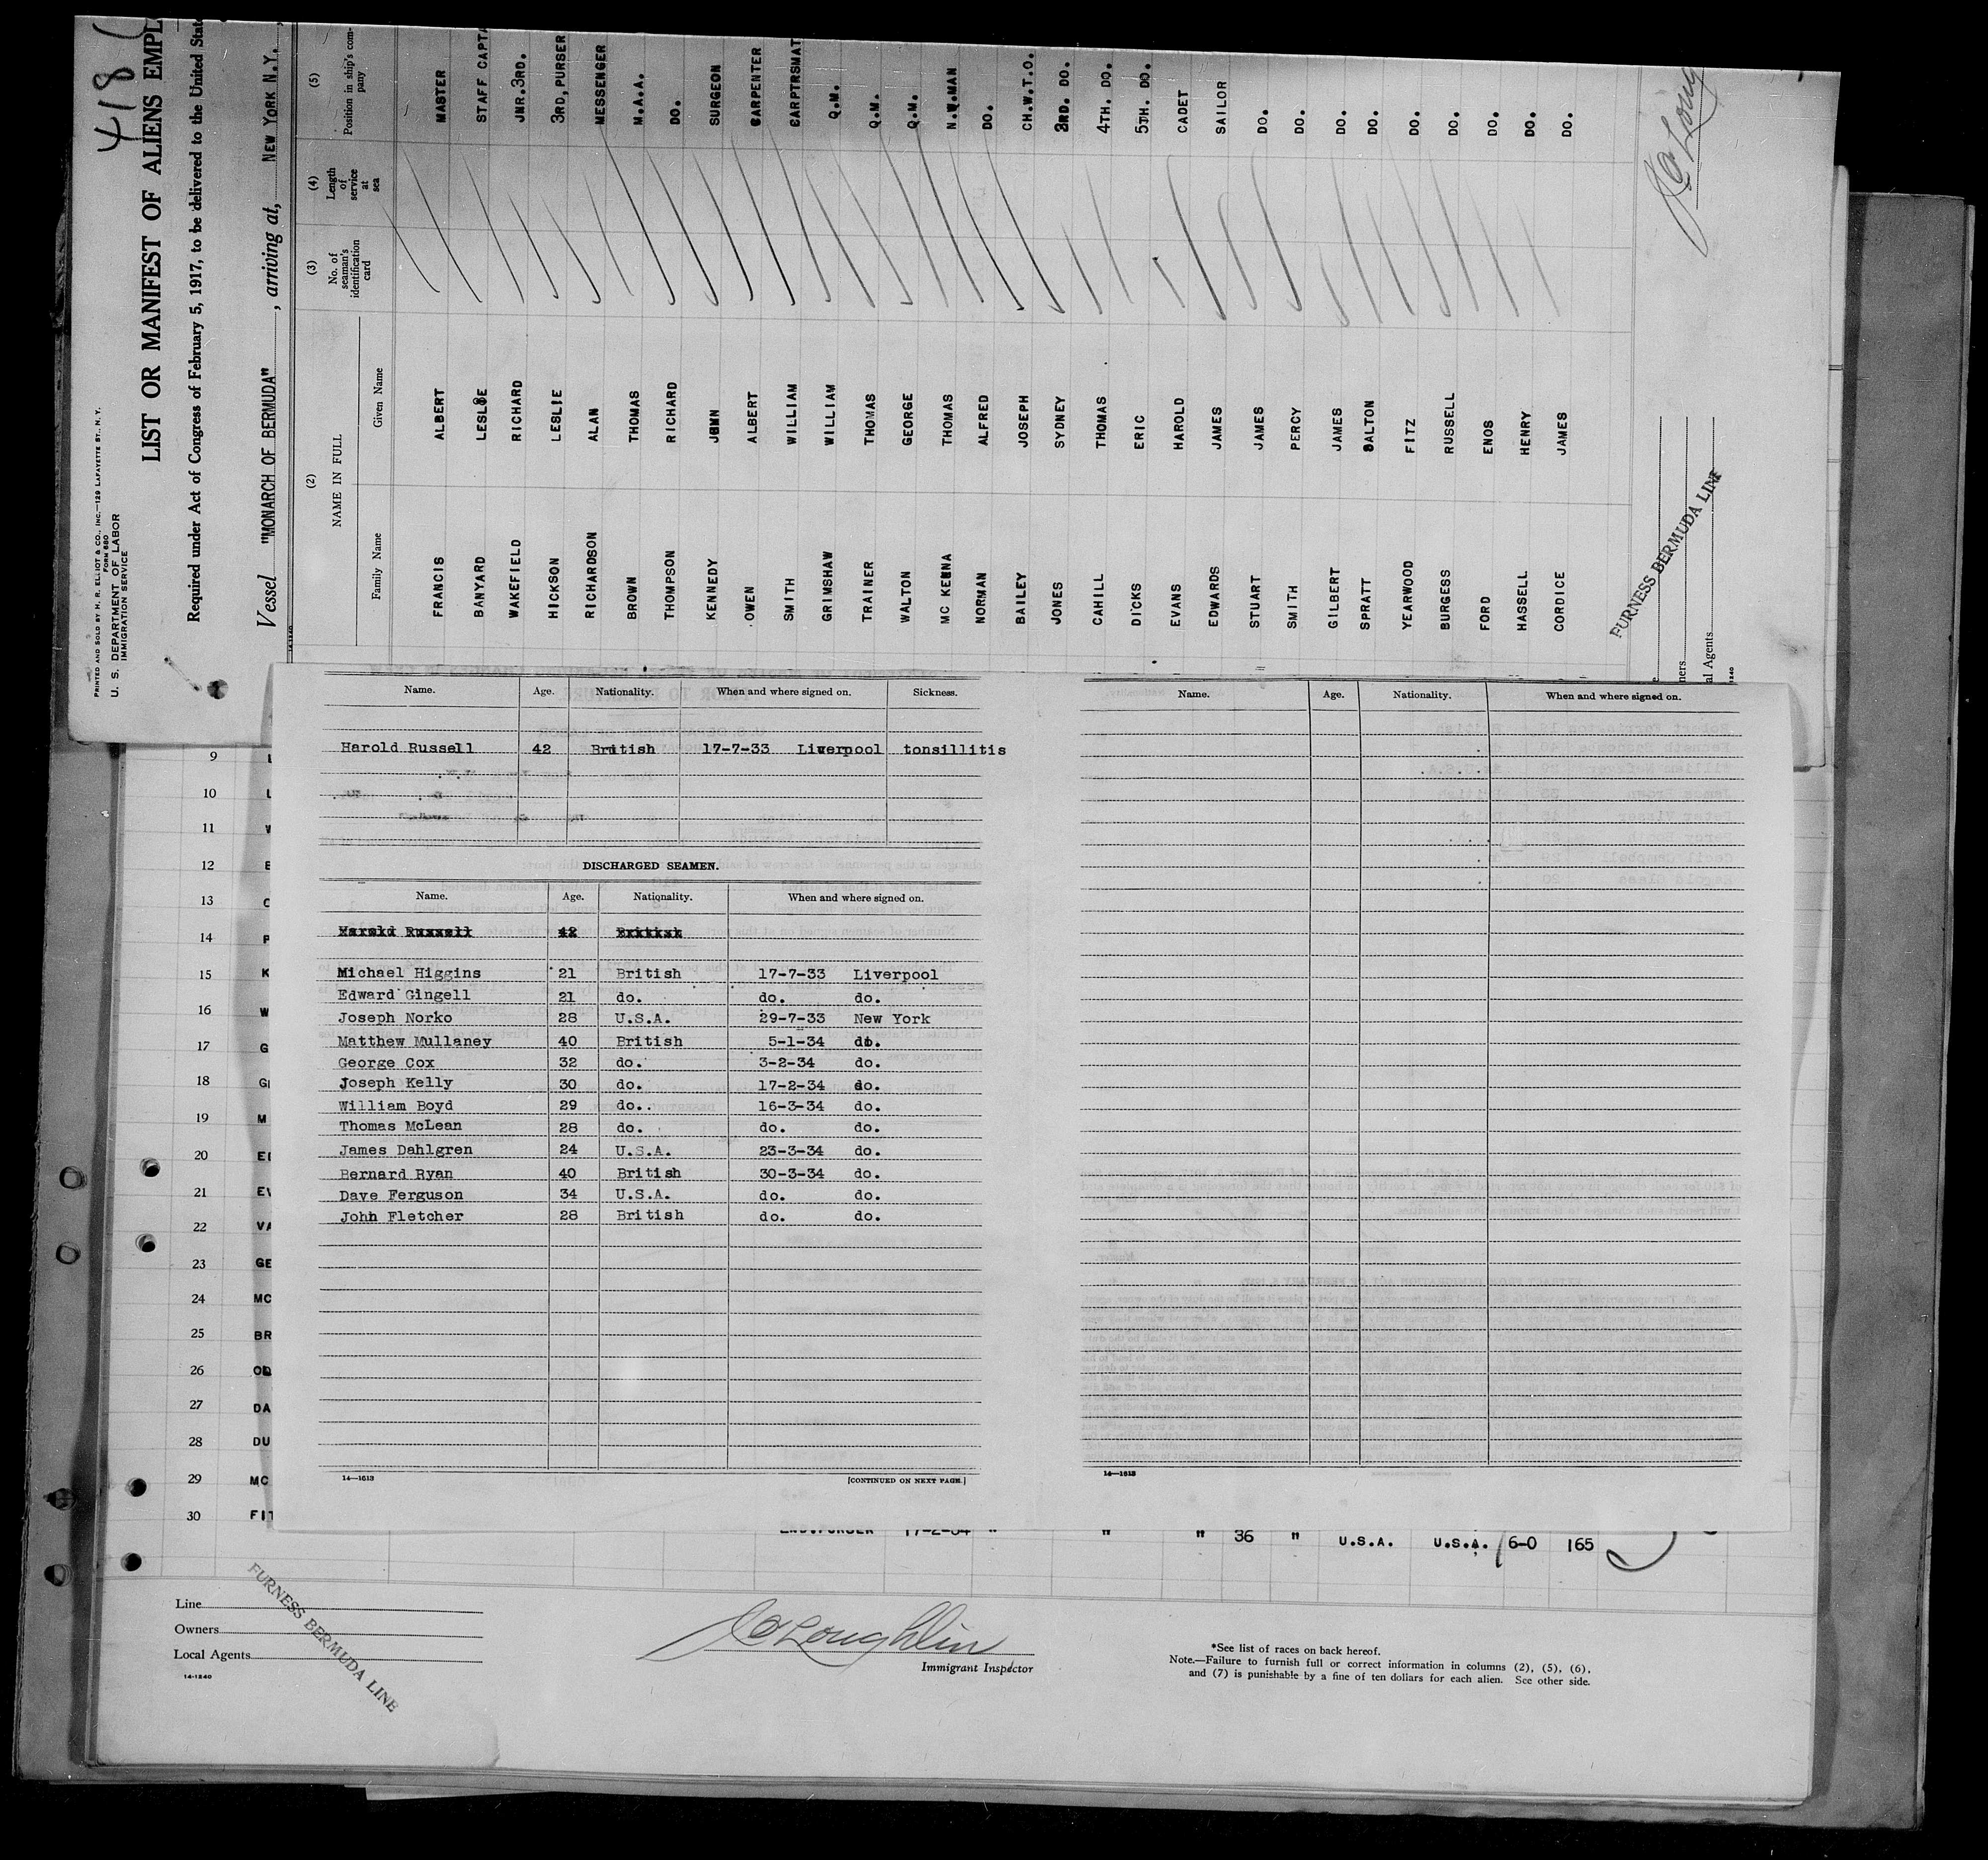 418
PRINTED AND SOLD BY H. R. ELLIOT & CO., INC.—129 LAFAYETTE ST., N. Y.
FORM 680
U. S. DEPARTMENT OF LABOR
IMMIGRATION SERVICE
LIST OR MANIFEST OF ALIENS EMPL
Required under Act of Congress of February 5, 1917, to be delivered to the United Stat
Vessel "MONARCH OF BERMUDA", arriving at, NEW YORK N.Y.,
(2) (3) (4) (5)
NAME IN FULL No. of seaman's identification card Length of service at sea Position in ship's company
Family Name Given Name
FRANCIS ALBERT MASTER
BANYARD LESLIE STAFF CAPTA
WAKEFIELD RICHARD JNR.3RD.
HICKSON LESLIE 3RD,PURSER
RICHARDSON ALAN MESSENGER
BROWN THOMAS M.A.A.
THOMPSON RICHARD DO.
KENNEDY JOHN SURGEON
OWEN ALBERT CARPENTER
SMITH WILLIAM CARPTRSMAT
GRIMSHAW WILLIAM Q.M.
TRAINER THOMAS Q.M.
WALTON GEORGE Q.M.
MC KENNA THOMAS N.W.MAN
NORMAN ALFRED DO.
BAILEY JOSEPH CH.W.T.O.
JONES SYDNEY 3RD. DO.
CAHILL THOMAS 4TH. DO.
DICKS ERIC 5TH. DO.
EVANS HAROLD CADET
EDWARDS JAMES SAILOR
STUART JAMES DO.
SMITH PERCY DO.
GILBERT JAMES DO.
SPRATT DALTON DO.
YEARWOOD FITZ DO.
BURGESS RUSSELL DO.
FORD ENOS DO.
HASSELL HENRY DO.
CORDICE JAMES DO.
FURNESS BERMUDA LINE
ners
al Agents
Name. Age. Nationality. When and where signed on. Sickness.
Harold Russell 42 British 17-7-33 Liverpool tonsillitis
DISCHARGED SEAMEN.
Name. Age. Nationality. When and where signed on.
Harold Russell 42 British
Michael Higgins 21 British 17-7-33 Liverpool
Edward Gingell 21 do. do. do.
Joseph Norko 28 U.S.A. 29-7-33 New York
Matthew Mullaney 40 British 5-1-34 do.
George Cox 32 do. 3-2-34 do.
Joseph Kelly 30 do. 17-2-34 do.
William Boyd 29 do.. 16-3-34 do.
Thomas McLean 28 do. do. do.
James Dahlgren 24 U.S.A. 23-3-34 do.
Bernard Ryan 40 British 30-3-34 do.
Dave Ferguson 34 U.S.A. do. do.
John Fletcher 28 British do. do.
14—1613 [CONTINUED ON NEXT PAGE.]
Name. Age. Nationality. When and where signed on.
14—1613
9 L
10 L
11 W
12 E
13 C
14 P
15 K
16 W
17 G
18 GI
19 M
20 EI
21 EV
22 VA
23 GE
24 MC
25 BR
26 OD
27 DA
28 DU
29 MC
30 FIT
17-2-34 " " " 36 " U.S.A. U.S.A. 6-0 165
Line
Owners
Local Agents
14-1240
FURNESS BERMUDA LINE
Immigrant Inspector
*See list of races on back hereof.
Note.—Failure to furnish full or correct information in columns (2), (5), (6),
and (7) is punishable by a fine of ten dollars for each alien. See other side.